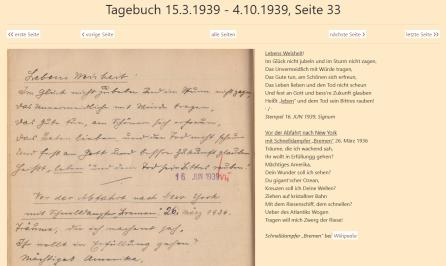 Tagebuch 15.3.1939 - 4.10.1939, Seite 33
<< erste Seite
< vorige Seite
alle Seiten
nächste Seite >
letzte Seite >>
Lebens Weisheit!
Im Glück nicht jubeln und im Sturm nicht zagen,
das Unvermeidliche mit Würde tragen,
das Gute tun, am Schönen sich erfreun,
das Leben lieben und den Tod nicht scheun
und fest an Gott und bessre Zukunft glauben
heißt „leben" und dem Tod sein Bittres rauben!
16. JUN 1939
Vor der Abfahrt nach New York
mit Schnelldampfer „Bremen" 26. März 1936.
Träume, die ich wachend sah,
Ihr wollt in Erfüllung gehen?
Mächtiges Amerika,
Lebens Weisheit!
Im Glück nicht jubeln und im Sturm nicht zagen,
Das Unvermeidlich mit Würde tragen,
Das Gute tun, am Schönen sich erfreun,
Das Leben lieben und den Tod nicht scheun
Und fest an Gott und bess're Zukunft glauben
Heißt „leben" und dem Tod sein Bittres rauben!
- / -
Stempel 16. JUN 1939, Signum
Vor der Abfahrt nach New York
mit Schnelldampfer „Bremen" 26. März 1936
Träume, die ich wachend sah,
Ihr wollt in Erfüllungg gehen?
Mächtiges Amerika,
Dein Wunder soll ich sehen?
Du gigant'scher Ozean,
Kreuzen soll ich Deine Wellen?
Ziehen auf kristallner Bahn
Mit dem Riesenschiff, dem schnellen?
Ueber des Atlantiks Wogen
Tragen will mich Zwerg der Riese!
Schnelldampfer „Bremen" bei Wikipedia